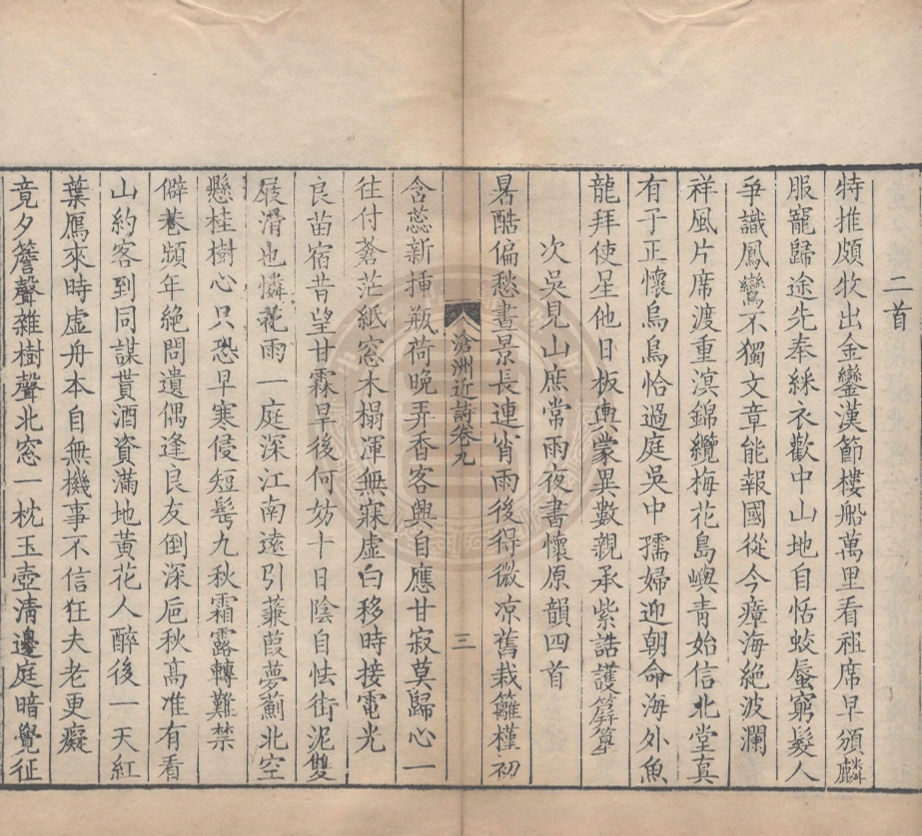 二首
特推頗牧出金鑾漢節樓船萬里看祖席早頒麟
服寵歸途先奉綵衣歡中山地自恬蛟蜃窮髮人
爭識鳳鸞不獨文章能報國從今瘴海絕波瀾
祥風片席渡重溟錦纜梅花島嶼青始信北堂真
有子正懷烏鳥恰過庭吳中孺婦迎朝命海外魚
龍拜使星他日板輿蒙異數親承紫誥護屏篳
次吳見山庶常雨夜書懷原韻四首
暑酷偏愁晝景長連宵雨後得微凉舊栽籬槿初
含蕊新揷瓶荷晚弄香客興自應甘寂莫歸心一
往付蒼茫紙窓木榻渾無寐虛白移時接電光
良苗宿昔望甘霖旱後何妨十日陰自怯街泥雙
屐滑也憐花雨一庭深江南遠引蒹葭夢薊北空
懸桂樹心只恐早寒侵短髩九秋霜露轉難禁
僻巷頻年絕問遺偶逢良友倒深巵秋高准有看
山約客到同謀貰酒資滿地黃花人醉後一天紅
葉鴈來時虛舟本自無機事不信狂夫老更癡
竟夕簷聲雜樹聲北窓一枕玉壺淸邊庭暗覺征
滄洲近詩卷九
三